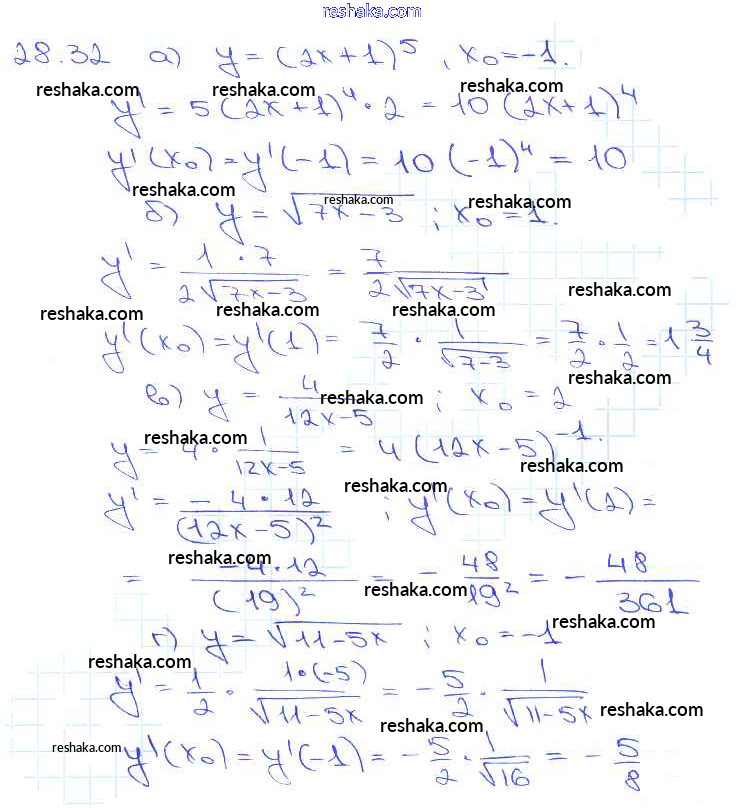 reshaka.com
28.32 а) y = (2x+1)^5, x₀ = -1.
reshaka.com reshaka.com reshaka.com
y' = 5(2x+1)^4 · 2 = 10(2x+1)^4
y'(x₀) = y'(-1) = 10(-1)^4 = 10
reshaka.com reshaka.com reshaka.com
б) y = √(7x-3); x₀ = 1.
y' = (1·7)/(2√(7x-3)) = 7/(2√(7x-3))
reshaka.com
reshaka.com reshaka.com reshaka.com
y'(x₀) = y'(1) = 7/2 · 1/√(7-3) = 7/2 · 1/2 = 1 3/4
reshaka.com
в) y = 4/(12x-5); x₀ = 2
reshaka.com
reshaka.com
y = 4 · 1/(12x-5) = 4(12x-5)^-1.
reshaka.com
reshaka.com
y' = (-4·12)/(12x-5)²; y'(x₀) = y'(2) =
reshaka.com
= (-4·12)/(19)² = -48/19² = -48/361
reshaka.com
г) y = √(11-5x); x₀ = -1
reshaka.com
reshaka.com
y' = 1/2 · (1·(-5))/√(11-5x) = -5/2 · 1/√(11-5x)
reshaka.com
reshaka.com
reshaka.com
y'(x₀) = y'(-1) = -5/2 · 1/√16 = -5/8